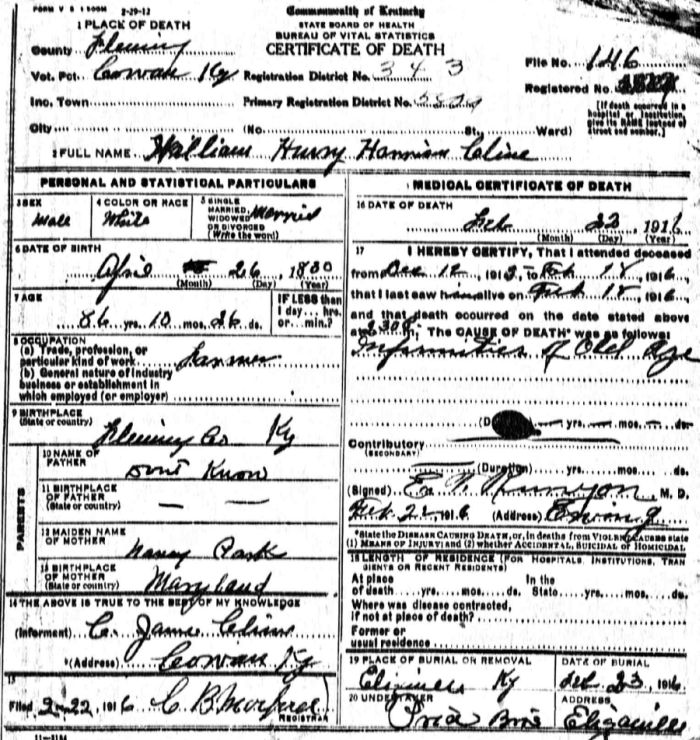 FORM V S 1 500M 2-29-12
Commonwealth of Kentucky
STATE BOARD OF HEALTH
BUREAU OF VITAL STATISTICS
CERTIFICATE OF DEATH
1 PLACE OF DEATH
County Fleming
Vot. Pct. Cowan Ky Registration District No. 343
File No. 146
Inc. Town Primary Registration District No.
Registered No.
[If death occurred in a hospital or institution, give its NAME instead of street and number.]
City (No. St. Ward)
2 FULL NAME William Henry Harrison Cline
PERSONAL AND STATISTICAL PARTICULARS
3 SEX Male
4 COLOR OR RACE White
5 SINGLE MARRIED, WIDOWED OR DIVORCED (Write the word) Married
6 DATE OF BIRTH
April 26, 1830
(Month) (Day) (Year)
7 AGE
86 yrs. 10 mos. 26 ds.
IF LESS than 1 day... hrs. or... min.?
8 OCCUPATION
(a) Trade, profession, or particular kind of work Farmer
(b) General nature of industry business or establishment in which employed (or employer)
9 BIRTHPLACE (State or country) Fleming Co Ky
PARENTS
10 NAME OF FATHER Dont Know
11 BIRTHPLACE OF FATHER (State or country) — —
12 MAIDEN NAME OF MOTHER Nancy
13 BIRTHPLACE OF MOTHER (State or country) Maryland
14 THE ABOVE IS TRUE TO THE BEST OF MY KNOWLEDGE
(Informant) C. James Cline
(Address) Cowan Ky
15
Filed 2-22, 1916 C B
REGISTRAR
MEDICAL CERTIFICATE OF DEATH
16 DATE OF DEATH
Feb 22, 1916
(Month) (Day) (Year)
17 I HEREBY CERTIFY, That I attended deceased
from Dec 12, 1915 to Feb 18, 1916,
that I last saw him alive on Feb 18, 1916,
and that death occurred on the date stated above
at The CAUSE OF DEATH* was as follows:
Infirmities of Old Age
yrs. mos. ds.
Contributory
(SECONDARY)
(Duration) yrs. mos. ds.
(Signed) Runyon M. D.
Feb 22, 1916 (Address) Ewing
*State the DISEASE CAUSING DEATH, or, in deaths from VIOLENT CAUSES state
(1) MEANS OF INJURY; and (2) whether ACCIDENTAL, SUICIDAL OR HOMICIDAL
18 LENGTH OF RESIDENCE (FOR HOSPITALS, INSTITUTIONS, TRANSIENTS OR RECENT RESIDENTS)
At place of death yrs. mos. ds. In the State yrs. mos. ds.
Where was disease contracted,
if not at place of death?
Former or
usual residence
19 PLACE OF BURIAL OR REMOVAL
Elizaville Ky
DATE OF BURIAL
Feb 23, 1916
20 UNDERTAKER
Price Bros
ADDRESS
Elizaville
11-3184